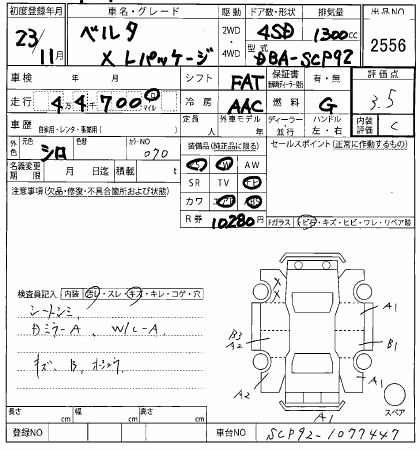 初度登録年月 車名・グレード 駆動 ドア数・形状 排気量 出品NO
23/11月 ベルタ X Lパッケージ 2WD・4WD 4SD 1300cc 2556
型式 DBA-SCP92
車検 年 月 シフト FAT 保証書 有・無 評価点
走行 4万4千700キロ マイル 冷房 AAC 燃料 G 3.5
車歴 自家用・レンタ・事業用( ) 定員 人 外車モデル 年 ディーラー・並行 ハンドル 左・右 内装評価 C
外色 元色 シロ 色替 カラーNO 070
装備品(純正品に限る) セールスポイント(正常に作動するもの)
PS PW AW
名義変更期限 月 日迄 積載 t SR TV ナビ
注意事項(欠品・修復・不具合箇所および状態) カワ エアB
R券 10,280円
Fガラス トビ石・キズ・ヒビ・ワレ・リペア跡
検査員記入 内装 汚レ・スレ・キズ・キレ・コゲ・穴
シートシミ
DミラーA、W/L-A
キズ、B、
A1
B3 A2
B1
A2 A1
A1
スペア
長さ cm 幅 cm 高さ cm
登録NO 車台NO SCP92-1077447